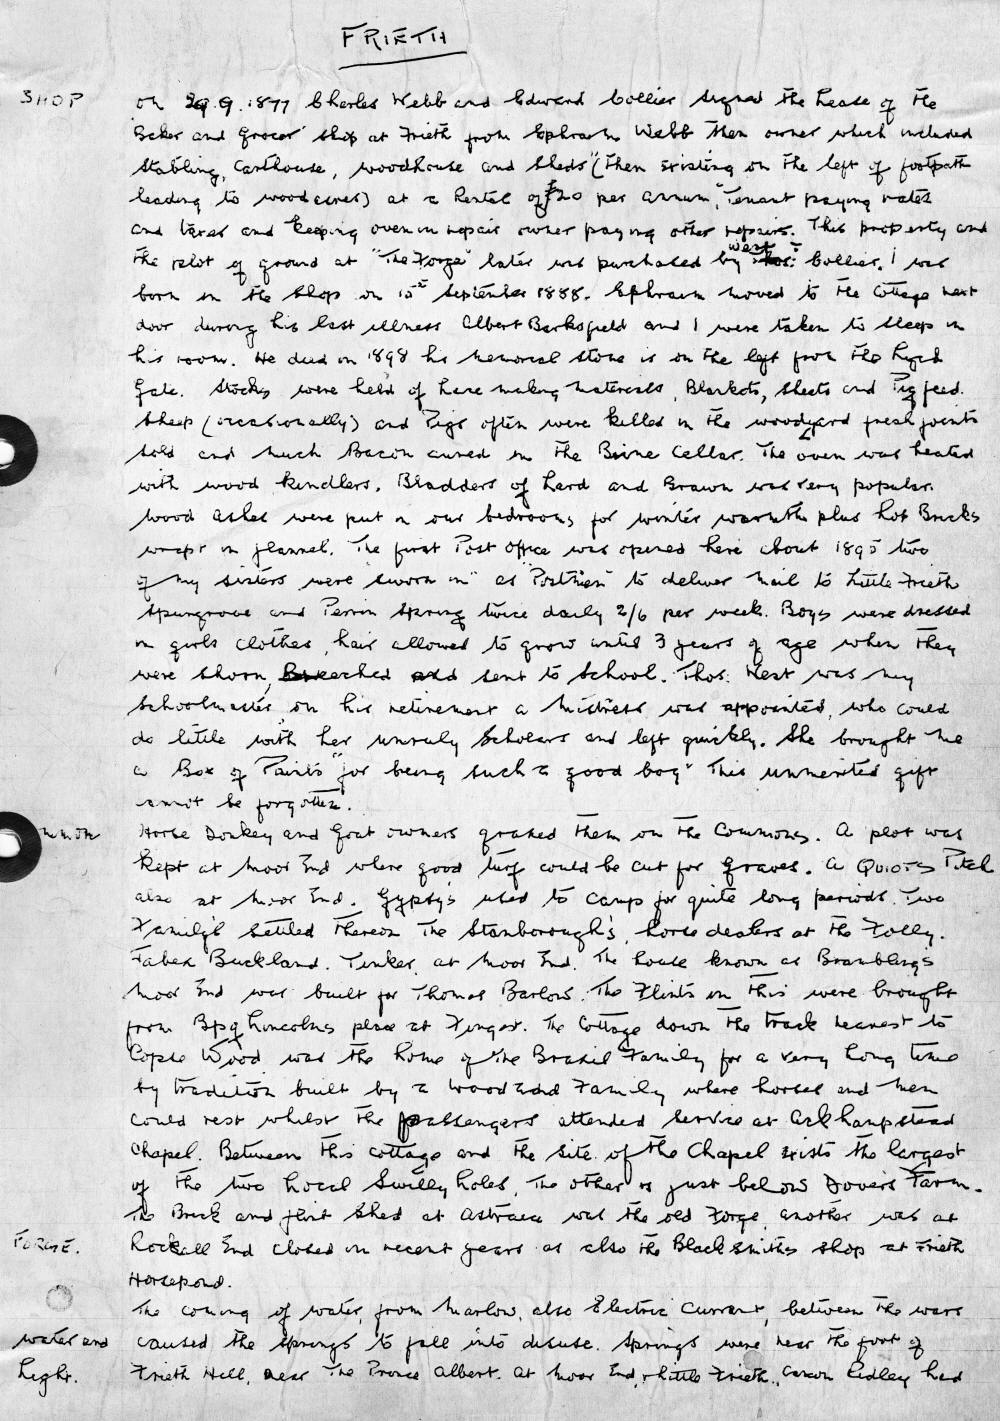 FRIETH
SHOP On 29.9.1877 Charles Webb and Edward Collier signed the Lease of the
Baker and Grocer' shop at Frieth from Ephraim Webb then owner which included
Stabling, Carthouse, woodhouse and sheds" (then existing on the left of footpath
leading to wood acres) at a Rental of £20 per annum, "Tenant paying rates
and taxes and keeping oven in repair owner paying other repairs. This property and
the plot of ground at "The Forge" later was purchased by West Collier. I was
born in the Shop on 15th September 1888. Ephraim moved to the Cottage next
door during his last illness Albert Barksfield and I were taken to sleep in
his room. He died in 1898 his memorial stone is on the left from the Lych
Gate. Stocks were held of Lace making materials, Blankets, sheets and Pig feed.
Sheep (occasionally) and Pigs often were killed in the woodyard fresh joints
sold and much Bacon cured in the Brine Cellar. The oven was heated
with wood kindlers. Bladders of Lard and Brawn was very popular.
Wood ashes were put in our bedrooms for winter warmth plus hot Bricks
wrapt in flannel. The first Post Office was opened here about 1895 two
of my sisters were "sworn in" as "Postmen" to deliver mail to Little Frieth
Spurgrove and Perrin Spring twice daily 2/6 per week. Boys were dressed
in girls clothes, hair allowed to grow until 3 years of age when they
were shorn, Breeched and sent to School. Thos. West was my
Schoolmaster, on his retirement a Mistress was appointed, who could
do little with her unruly Scholars and left quickly. She brought me
a Box of Paints "for being such a good boy" This unmerited gift
cannot be forgotten.
Horse Donkey and Goat owners grazed them on the Commons. A plot was
kept at Moor End where good turf could be cut for graves. A Quoits Pitch
also at Moor End. Gypsy's used to camp for quite long periods. Two
Family's settled thereon The Stanborough's, horse dealers at the Folly.
Faben Buckland. Tinker, at Moor End. The house known as Bramblings
Moor End was built for Thomas Barlow. The Flints in this were brought
from Bp of Lincolns place at Fingest. The Cottage down the track nearest to
Copse Wood was the home of the Brazil Family for a very long time
by tradition built by a Woodland Family where horses and men
could rest whilst the passengers attended service at Arkhampstead
Chapel. Between this cottage and the site of the Chapel exists the largest
of the two Local Swilly holes, the other is just below Dovers Farm.
The Brick and flint shed at Astraea was the old Forge, another was at
FORGE. Rockall End closed in recent years as also the Blacksmiths shop at Frieth
Horsepond.
The coming of water, from Marlow, also Electric Current, between the wars
water and caused the springs to fall into disuse. Springs were near the foot of
Light. Frieth Hill, near The Prince Albert. At Moor End, Little Frieth, Canon Ridley had